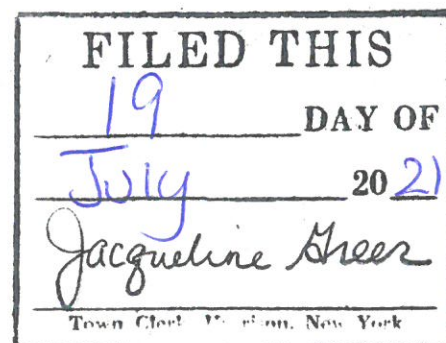 FILED THIS
19 DAY OF
July 20 21
Jacqueline Greer
Town Clerk Harrison, New York